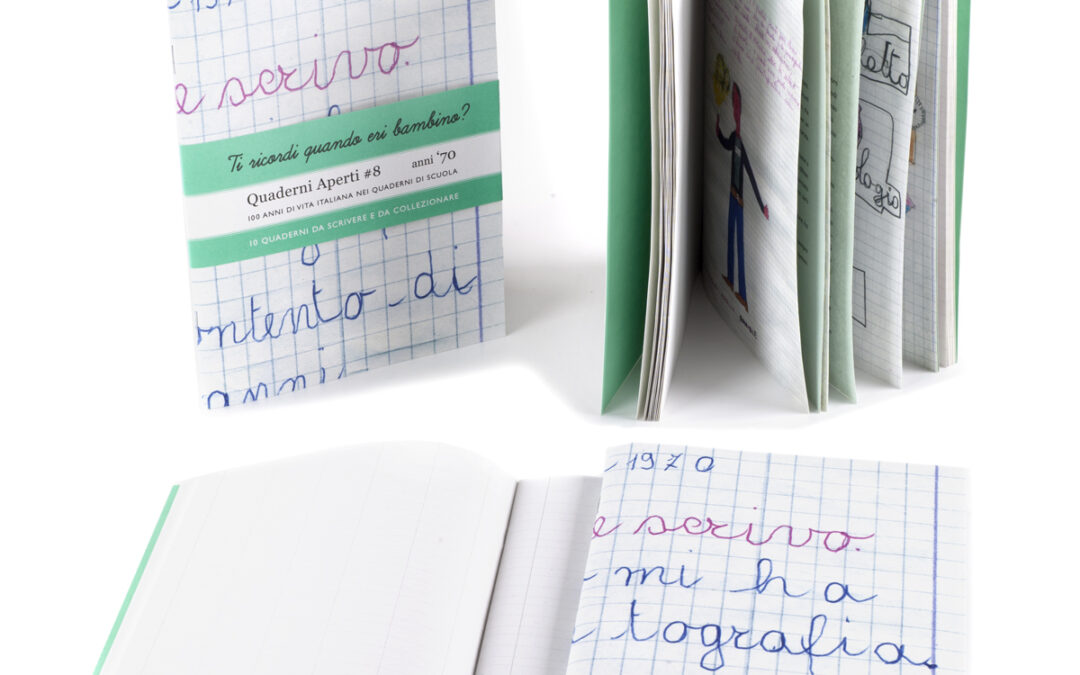 e scrivo.
Ti ricordi quando eri bambino?
Quaderni Aperti #8 anni '70
100 ANNI DI VITA ITALIANA NEI QUADERNI DI SCUOLA
10 QUADERNI DA SCRIVERE E DA COLLEZIONARE
ntento - di
anni
letto
ologio
1970
e scrivo.
- mi ha
tografia.